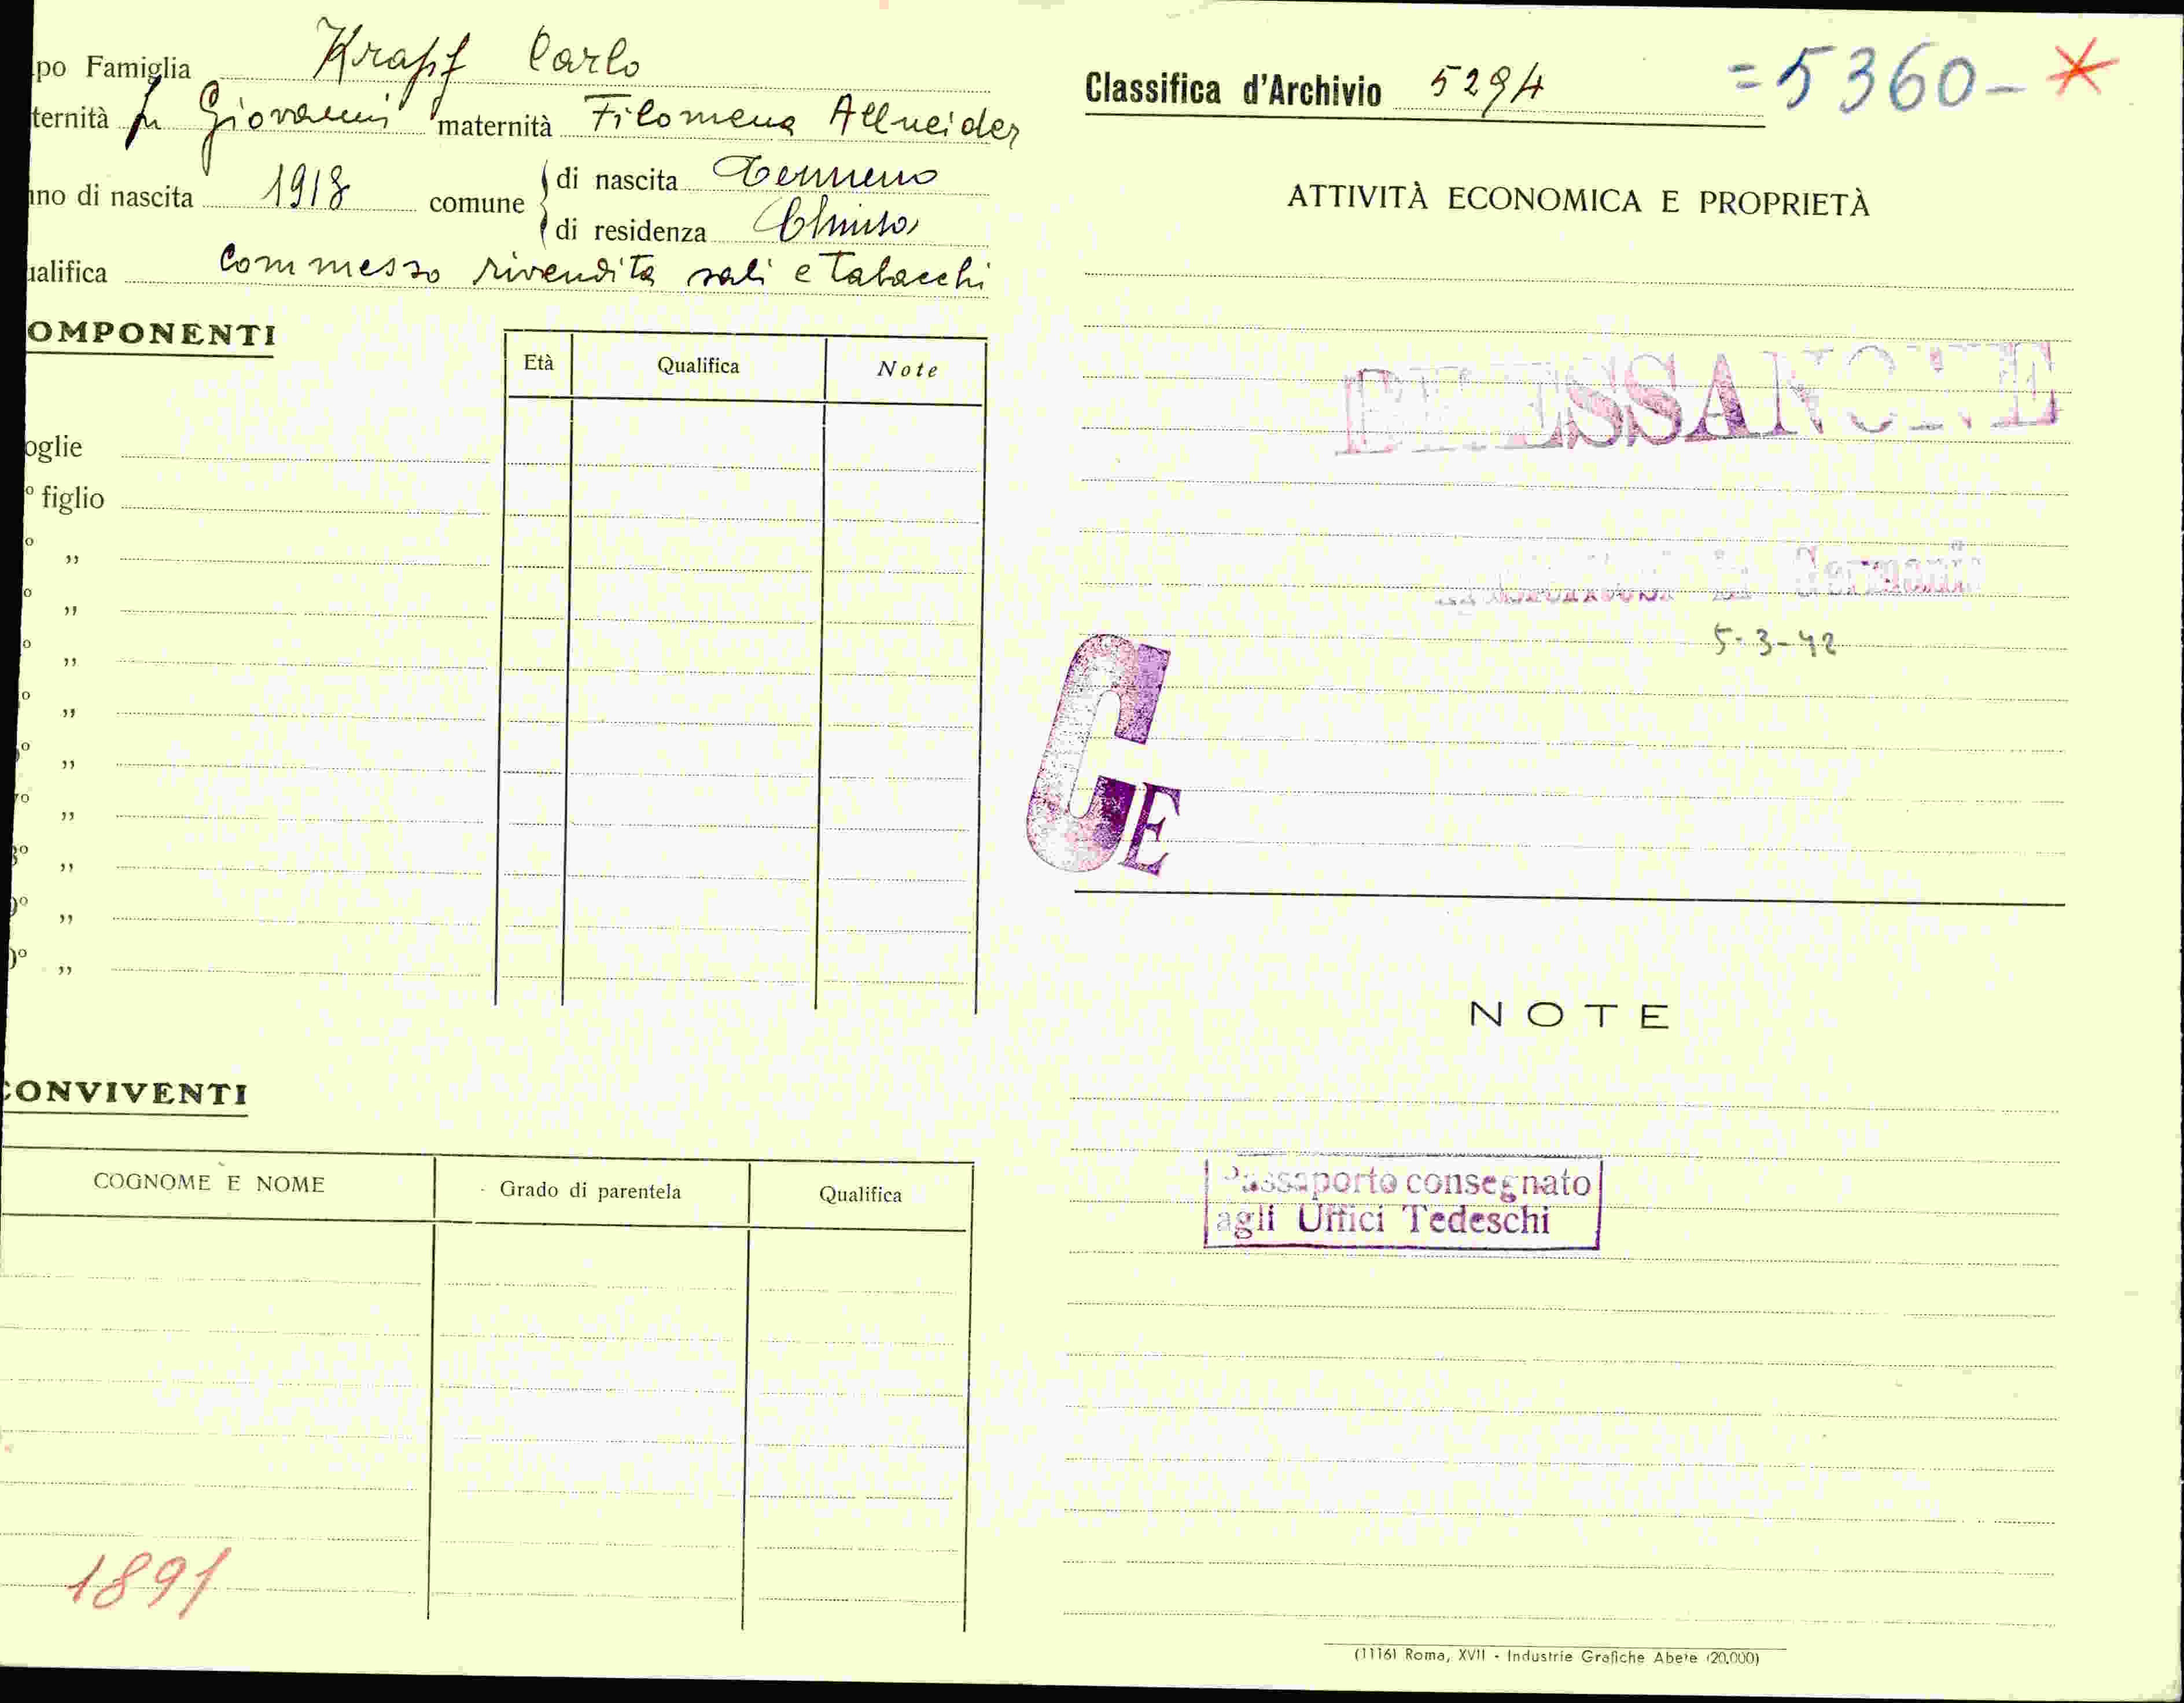 po Famiglia Krapf Carlo
ternità fu Giovanni maternità Filomena Allneider
no di nascita 1918 comune di nascita Termeno
di residenza Chiusa
ualifica Commesso rivendita sali e Tabacchi
OMPONENTI
Età Qualifica Note
oglie
° figlio
° ,,
° ,,
° ,,
° ,,
° ,,
7° ,,
8° ,,
9° ,,
0° ,,
CONVIVENTI
COGNOME E NOME Grado di parentela Qualifica
1891
Classifica d'Archivio 5294 =5360-*
ATTIVITÀ ECONOMICA E PROPRIETÀ
BRESSANONE
Germania
5-3-42
G E
NOTE
Passaporto consegnato
agli Uffici Tedeschi
(1116) Roma, XVII - Industrie Grafiche Abete (20.000)